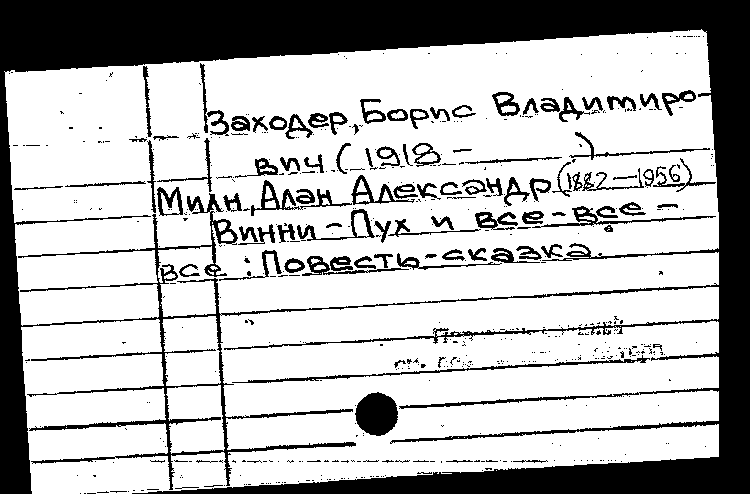 Заходер, Борис Владимиро-
вич (1918 -     )
Милн, Алан Александр (1882-1956)
Винни-Пух и все-все-
все : Повесть-сказка.
см.